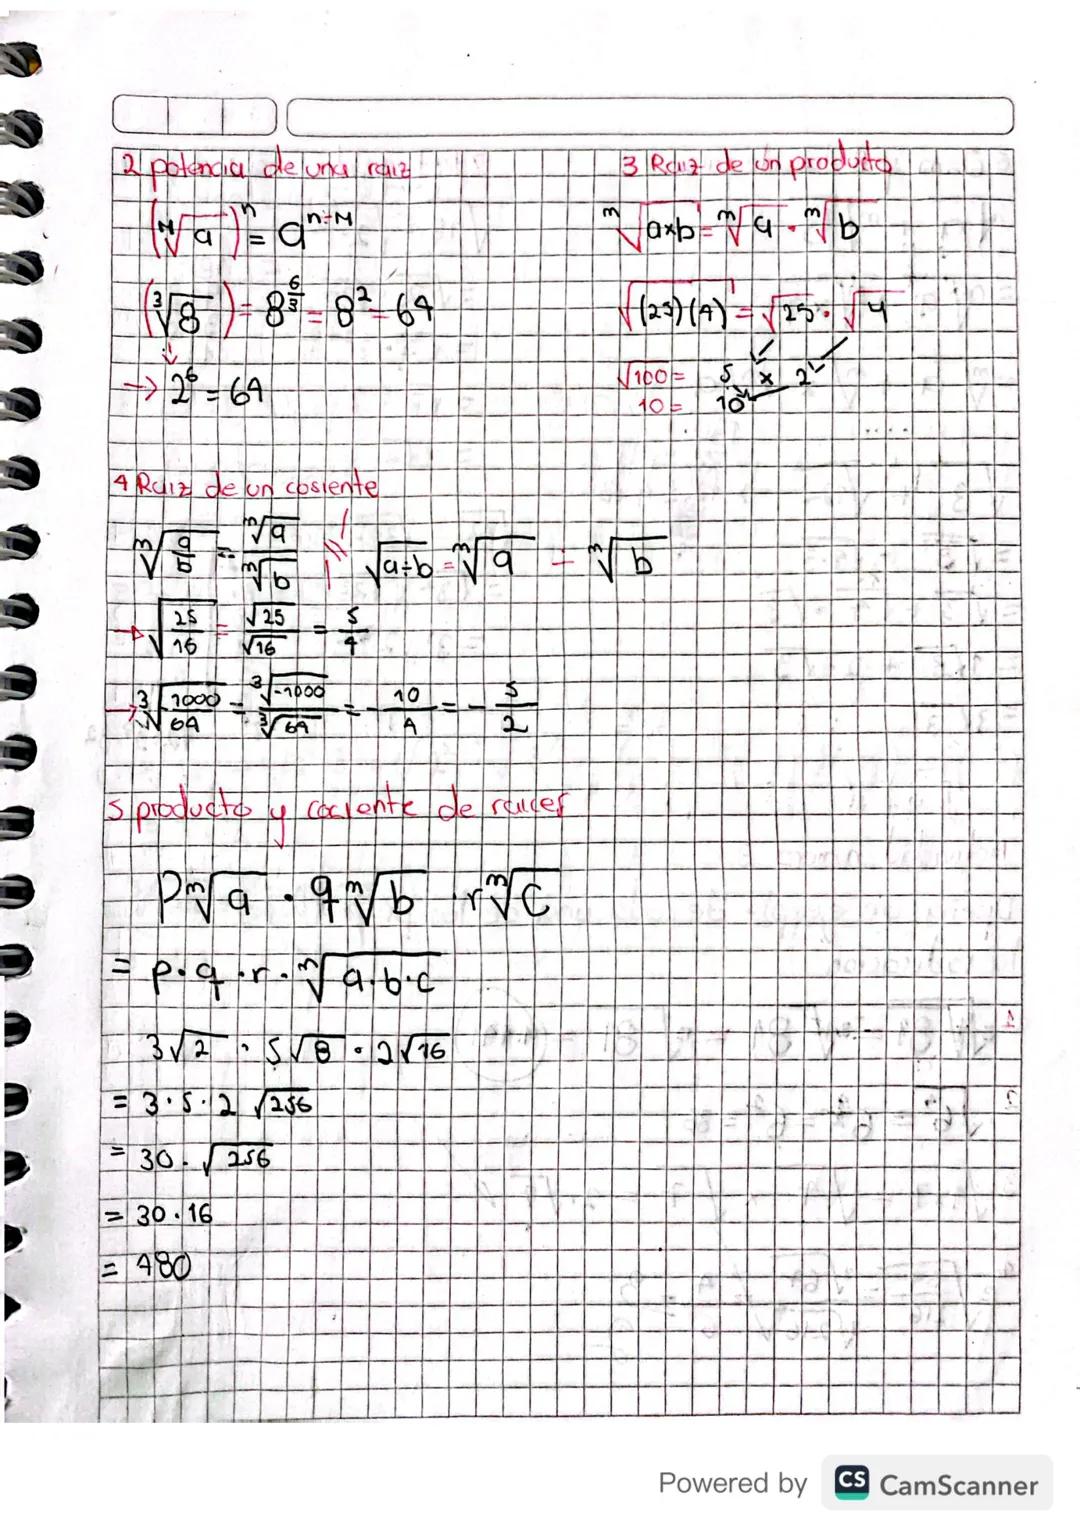 2 potencia de una raiz
(ᴹ√a)ⁿ = a^(n÷M)
(³√8) = 8^(6/3) = 8² = 64
→ 2⁶ = 64
3 Raiz de un producto
ᵐ√(a×b) = ᵐ√a · ᵐ√b
√((25)(4)) = √25 · √4
√100 = 5 x 2
10 = 10
4 Raiz de un cosiente
ᵐ√(a/b) = ᵐ√a / ᵐ√b // √(a÷b) = ᵐ√a ÷ ᵐ√b
→ √(25/16) = √25/√16 = 5/4
→ ³√(-1000/64) = ³√-1000/³√64 = -10/4 = -5/2
5 producto y cociente de raices
pᵐ√a · qᵐ√b · rᵐ√c
= p·q·r·ᵐ√(a·b·c)
3√2 · 5√8 · 2√16
= 3·5·2 √256
= 30·√256
= 30·16
= 480
Powered by CS CamScanner